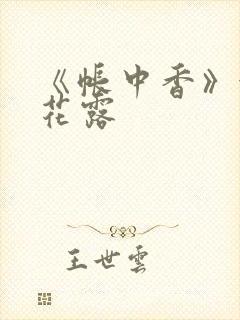 《帳中香》
花露
王世雲